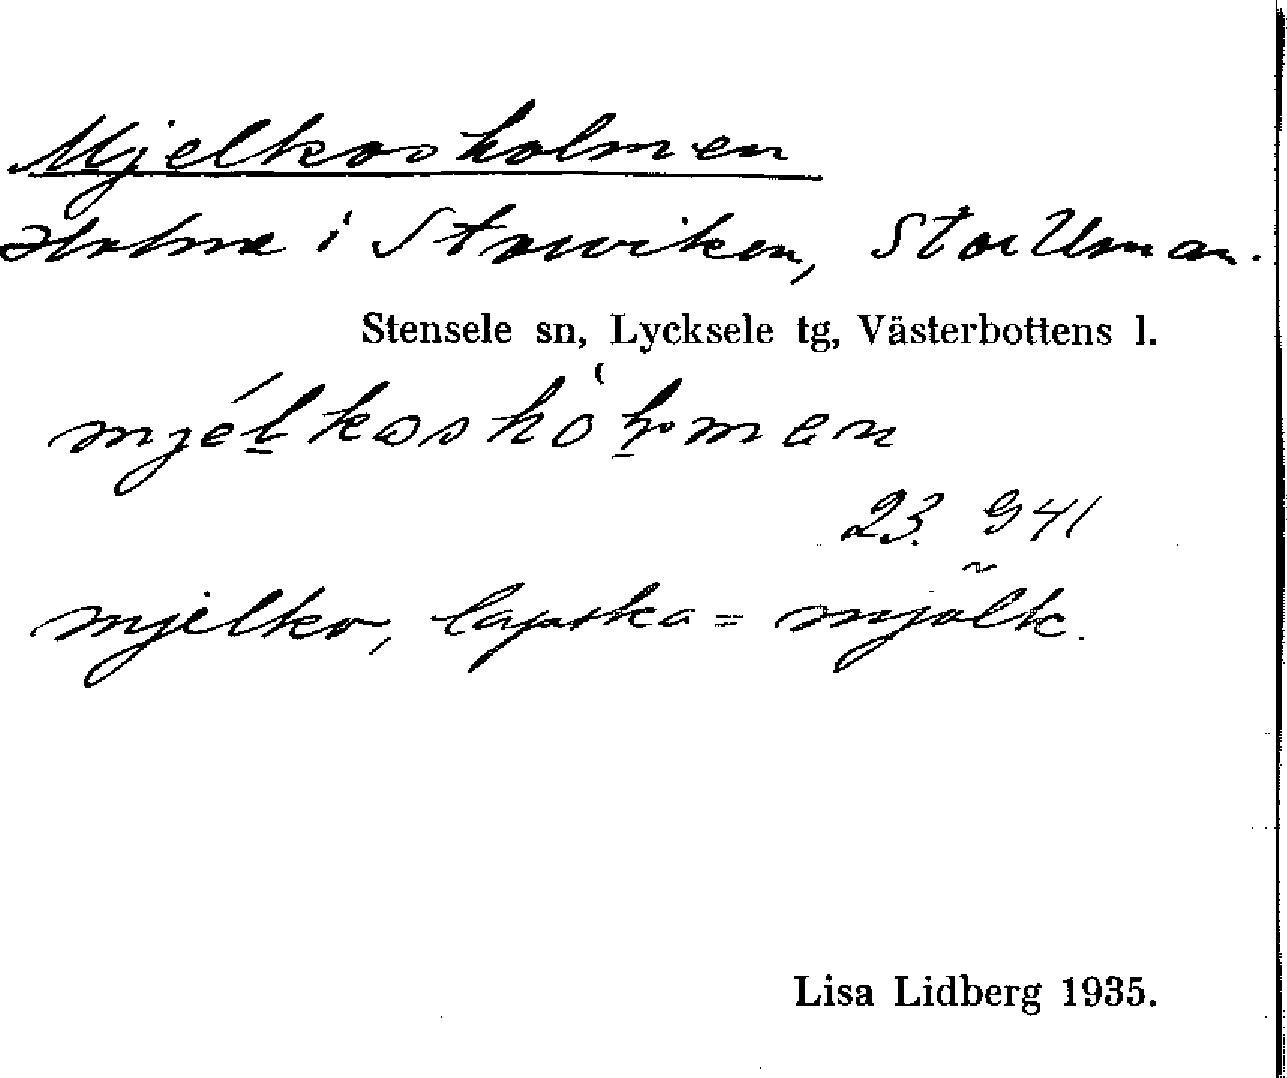 Mjelkosholmen
Holme i Storviken, Stor Uman.
Stensele sn, Lycksele tg, Västerbottens l.
23. 941
mjelko, lapska = mjölk.
Lisa Lidberg 1935.